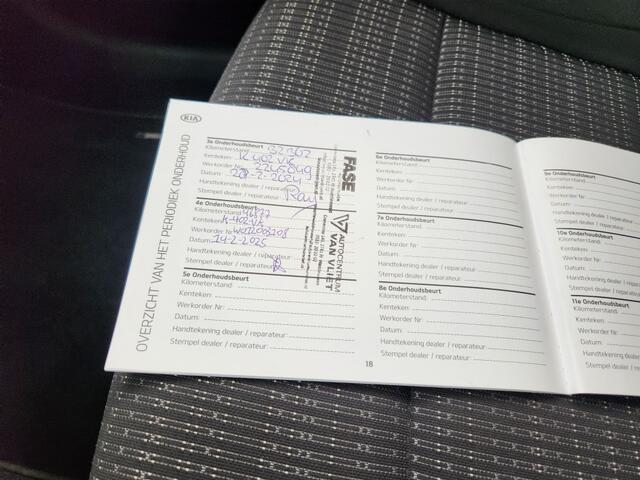 KIA
OVERZICHT VAN HET PERIODIEK ONDERHOUD
3e Onderhoudsbeurt
Kilometerstand:
Kenteken: K402VK
Werkorder Nr.:
Datum: -2-2024
Handtekening dealer / reparateur:
Stempel dealer / reparateur: Ray
FASE
4e Onderhoudsbeurt
Kilometerstand:
Kenteken:
Werkorder Nr.:
Datum: 14-2-2025
Handtekening dealer / reparateur:
Stempel dealer / reparateur:
AUTOCENTRUM
VAN VLIET
5e Onderhoudsbeurt
Kilometerstand:
Kenteken:
Werkorder Nr.:
Datum:
Handtekening dealer / reparateur:
Stempel dealer / reparateur:
6e Onderhoudsbeurt
Kilometerstand:
Kenteken:
Werkorder Nr.:
Datum:
Handtekening dealer / reparateur:
Stempel dealer / reparateur:
7e Onderhoudsbeurt
Kilometerstand:
Kenteken:
Werkorder Nr.:
Datum:
Handtekening dealer / reparateur:
Stempel dealer / reparateur:
8e Onderhoudsbeurt
Kilometerstand:
Kenteken:
Werkorder Nr.:
Datum:
Handtekening dealer / reparateur:
Stempel dealer / reparateur:
18
9e Onderhoudsbeurt
Kilometerstand:
Kenteken:
Werkorder Nr.:
Datum:
Handtekening dealer
Stempel dealer / rep
10e Onderhoudsb
Kilometerstand:
Kenteken:
Werkorder Nr.:
Datum:
Handtekening deal
Stempel dealer /
11e Onderhoud
Kilometerstand
Kenteken:
Werkorder Nr
Datum:
Handtekening
Stempel deale